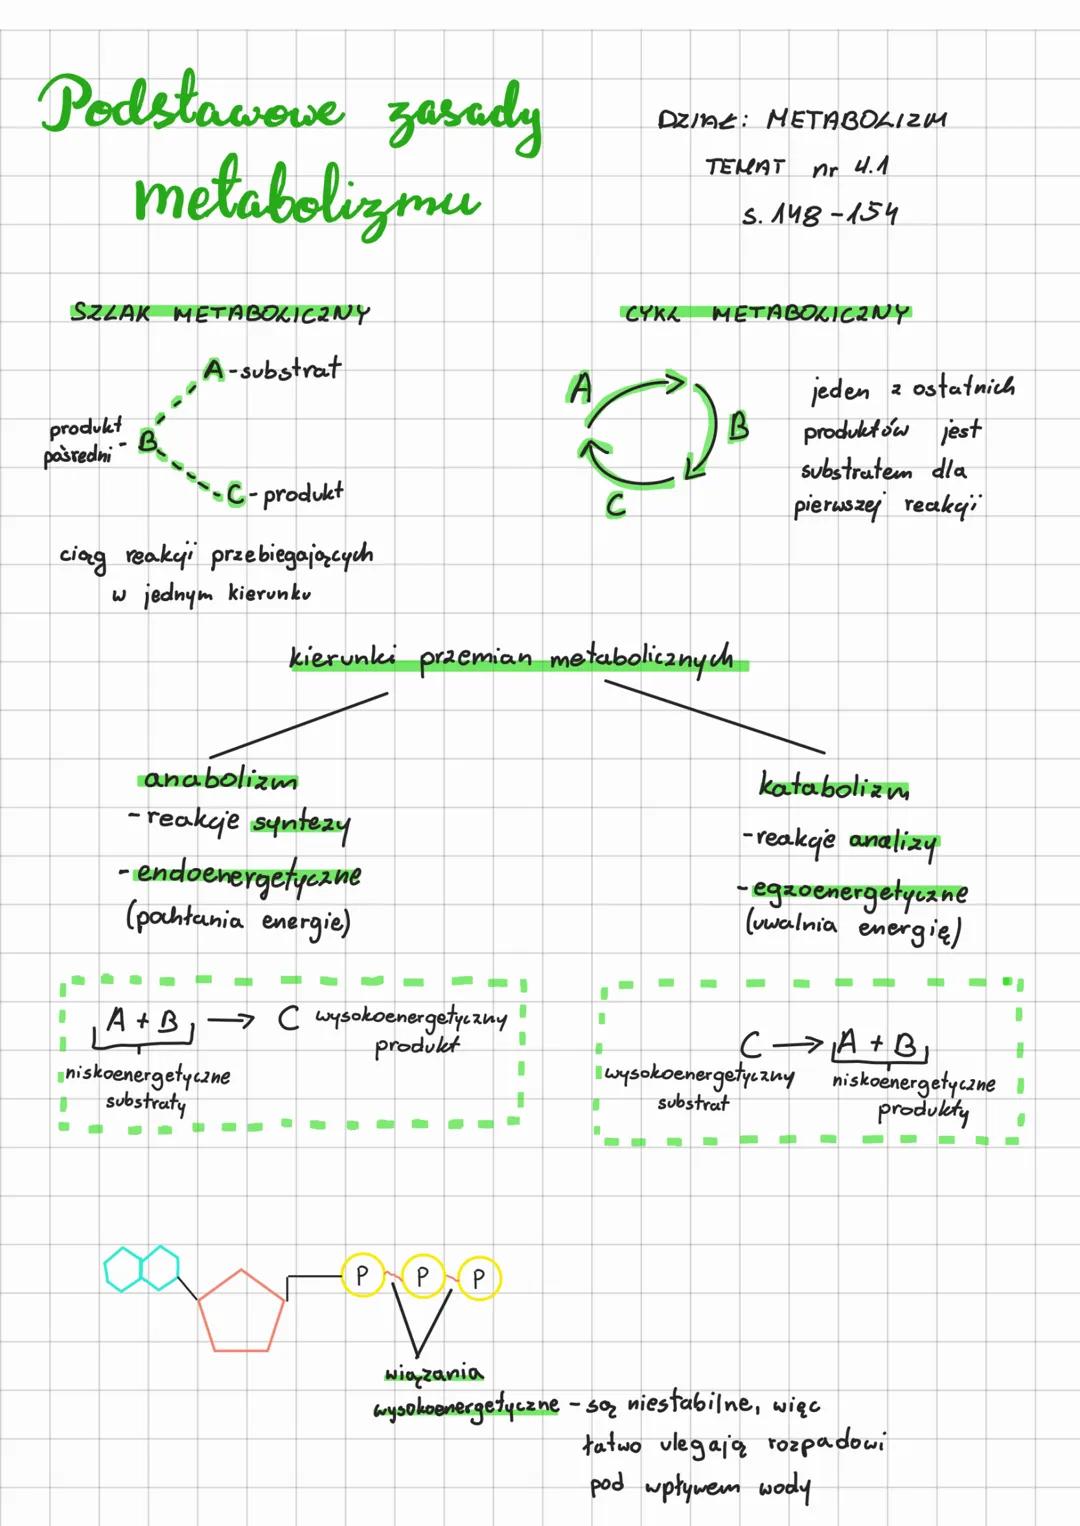 Podstawowe zasady
metabolizmu
DZIAŁ: METABOLIZM
TEMAT nr 4.1
s. 148-154
SZLAK METABOLICZNY
A - substrat
produkt
pośredni - B
C - produkt
ciąg reakcji przebiegających
w jednym kierunku
CYKL METABOLICZNY
A
B
C
jeden z ostatnich
produktów jest
substratem dla
pierwszej reakcji
kierunki przemian metabolicznych
anabolizm
- reakcje syntezy
- endoenergetyczne
(pochłania energię)
katabolizm
- reakcje analizy
- egzoenergetyczne
(uwalnia energię)
A + B → C wysokoenergetyczny
produkt
niskoenergetyczne
substraty
C → A + B
wysokoenergetyczny
substrat
niskoenergetyczne
produkty
P P P
wiązania
wysokoenergetyczne - są niestabilne, więc
łatwo ulegają rozpadowi
pod wpływem wody